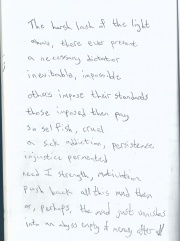 The harsh lash of the light
shows, there ever present
a necessary dictator
inevitable, impossible
others impose their standards
those imposed then pay
so selfish, cruel
a sick addiction, persistence
injustice permented
need I strength, motivation
push back all this and then
or, perhaps, the mind just vanishes
into an abyss empty of money after all